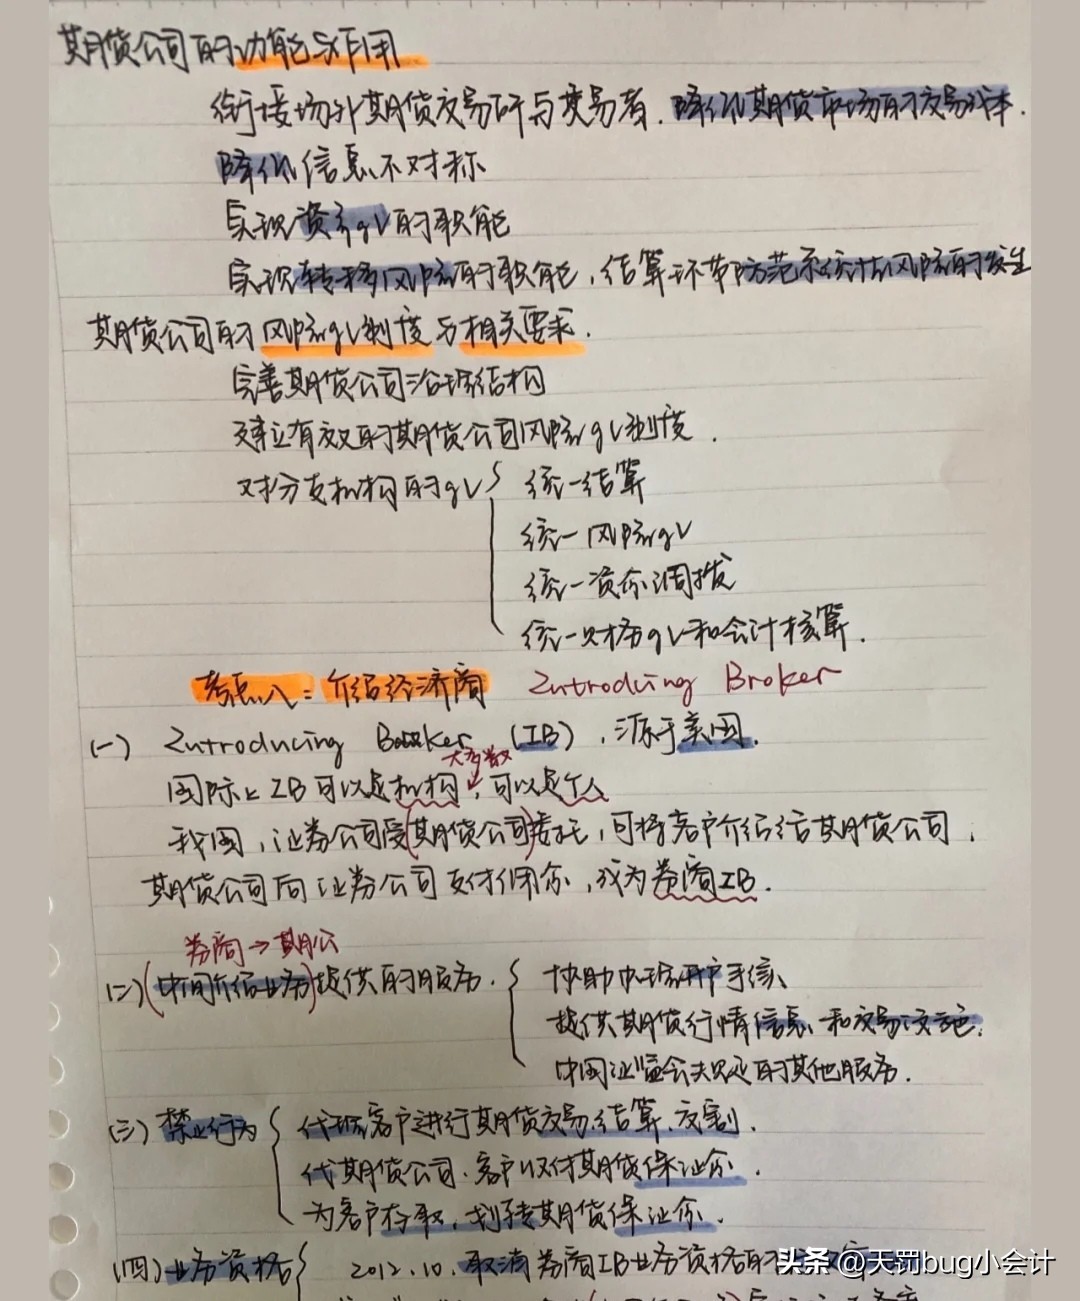 期货公司的功能与作用
衔接场外期货交易所与交易者.降低期货市场的交易成本.
降低信息不对称
实现资产gl的职能
实现转移风险的职能,结算环节防范系统性风险的发生
期货公司的风险gl制度与相关要求.
完善期货公司治理结构
建立有效的期货公司风险gl制度.
对分支机构的gl 统一结算
统一风险gl
统一资金调拨
统一财务gl和会计核算.
考点八:介绍经济商 Introducing Broker
(一) Introducing Broker (IB),源于美国.
大多数
国际上IB可以是机构,可以是个人
我国,证券公司受(期货公司)委托,可将客户介绍给期货公司,
期货公司向证券公司支付佣金,成为券商IB.
券商→期公
(二)(中间介绍业务)提供的服务. 协助办理开户手续、
提供期货行情信息、和交易设施.
中国证监会规定的其他服务.
(三)禁止行为 代理客户进行期货交易、结算、交割.
代期货公司、客户收付期货保证金.
为客户存取、划转期货保证金.
(四)业务资格 2012.10.取消券商IB业务资格的
头条 @天罚bug小会计